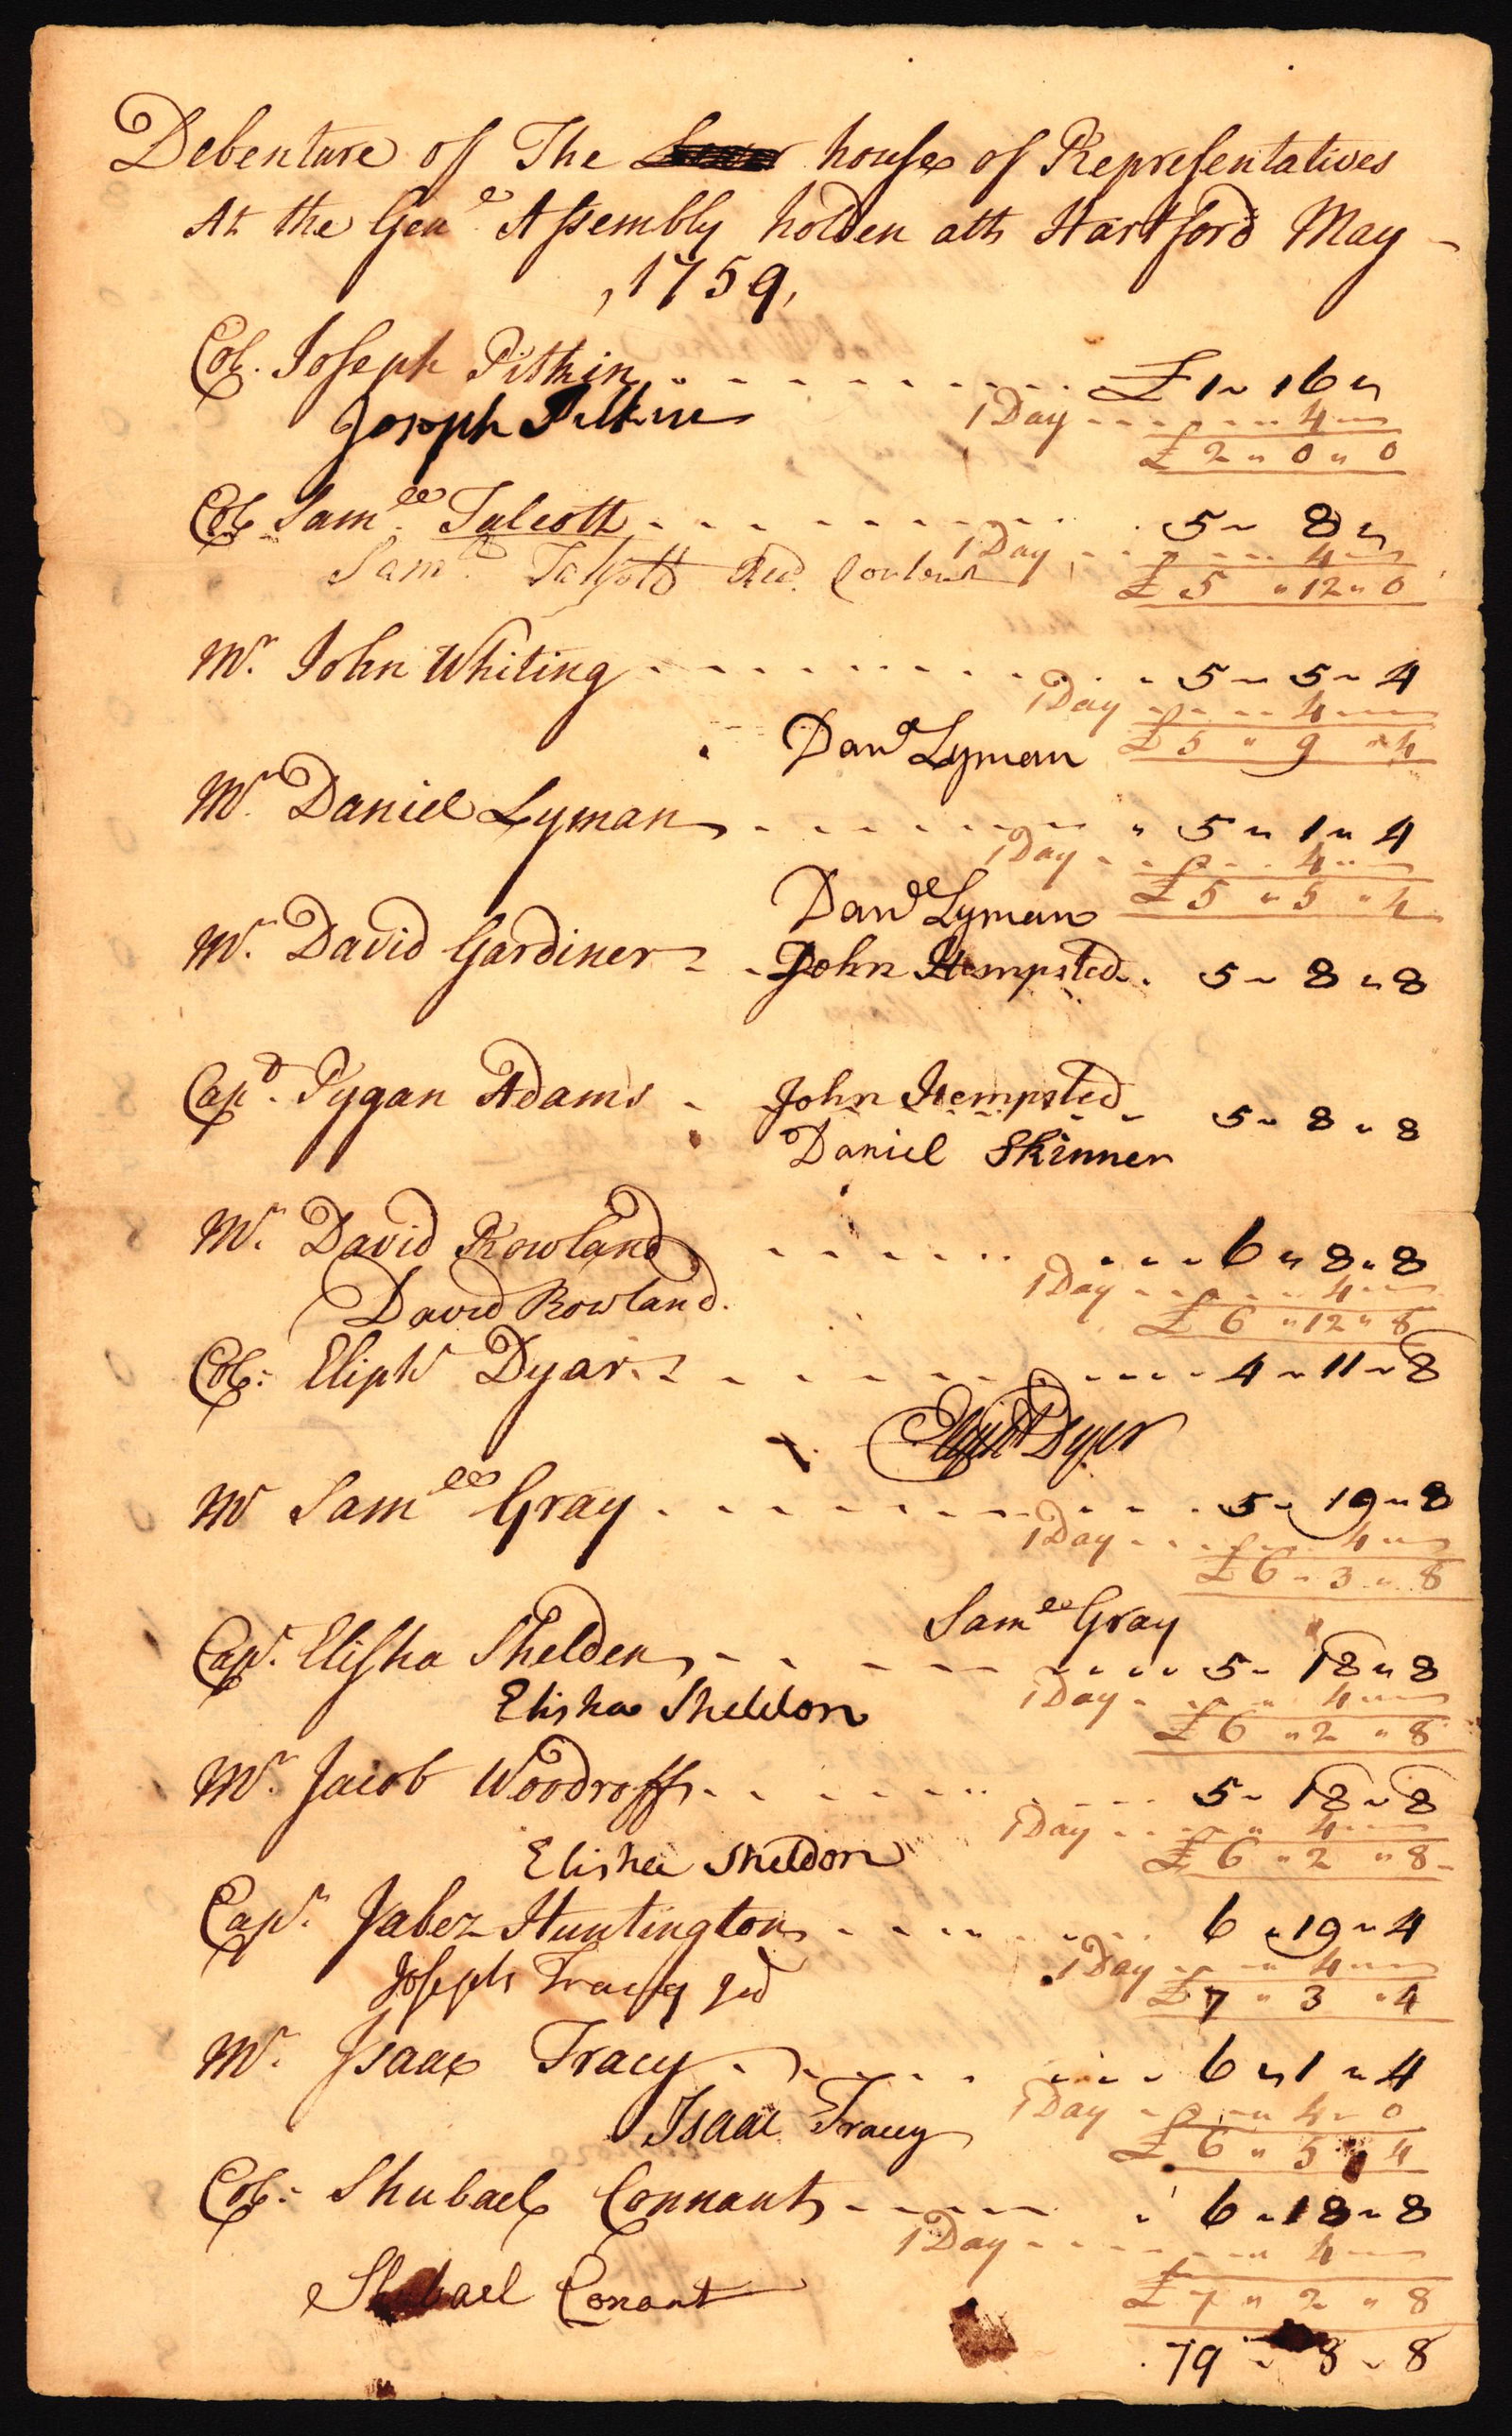 Debenture of The house of Representatives
At the Gen.e Assembly holden att Hartford May -
, 1759,
Col. Joseph Pitkin - - - - - - - - - £ 1 ~ 16 "
Joseph Pitkin 1 Day - - - - - - 4 -
£ 2 " 0 " 0
Col. Sam.ll Talcott - - - - - - - - - 5 ~ 8 "
1 Day - - - - - 4 -
Sam.ll Talcott £ 5 " 12 " 0
Mr. John Whiting - - - - - - - - - 5 ~ 5 ~ 4
1 Day - - - - 4 -
Danll Lyman £ 5 " 9 " 4
Mr. Daniel Lyman - - - - - - - - " 5 " 1 " 4
1 Day - - - - 4 " -
Danll Lyman £ 5 " 5 " 4
Mr. David Gardiner - - John Hempsted - 5 ~ 8 " 8
Capt. Pygan Adams - John Hempsted 5 ~ 8 " 8
Daniel Skinner
Mr. David Rowland - - - - - - - - - 6 " 8 " 8
1 Day - - - - - 4 " -
David Rowland. £ 6 " 12 " 8
Col: Eliph.t Dyar - - - - - - - - - - 4 ~ 11 ~ 8
Elipht Dyer
Mr Sam.ll Gray - - - - - - - - - - 5 ~ 19 " 8
1 Day - - - - - 4 " -
£ 6 - 3 " 8
Samll Gray
Cap.t Elisha Shelden - - - - - - - - 5 ~ 18 " 8
Elisha Sheldon 1 Day - - - - 4 " -
£ 6 " 2 " 8
Mr. Jacob Woodroff - - - - - - - - - 5 ~ 18 ~ 8
1 Day - - - - " 4 -
Elisha Sheldon £ 6 " 2 " 8 -
Cap.t Jabez Huntington - - - - - - 6 " 19 ~ 4
1 Day - - - " 4 " -
Joseph Tracy £ 7 " 3 " 4
Mr. Isaac Tracy - - - - - - - - - 6 " 1 " 4
1 Day - - - " 4 ~ 0
Isaac Tracy £ 6 " 5 " 4
Col: Shubael Connant - - - - - 6 " 18 ~ 8
1 Day - - - - - - " 4 -
Shubael Conant £ 7 " 2 " 8
79 ~ 8 ~ 8